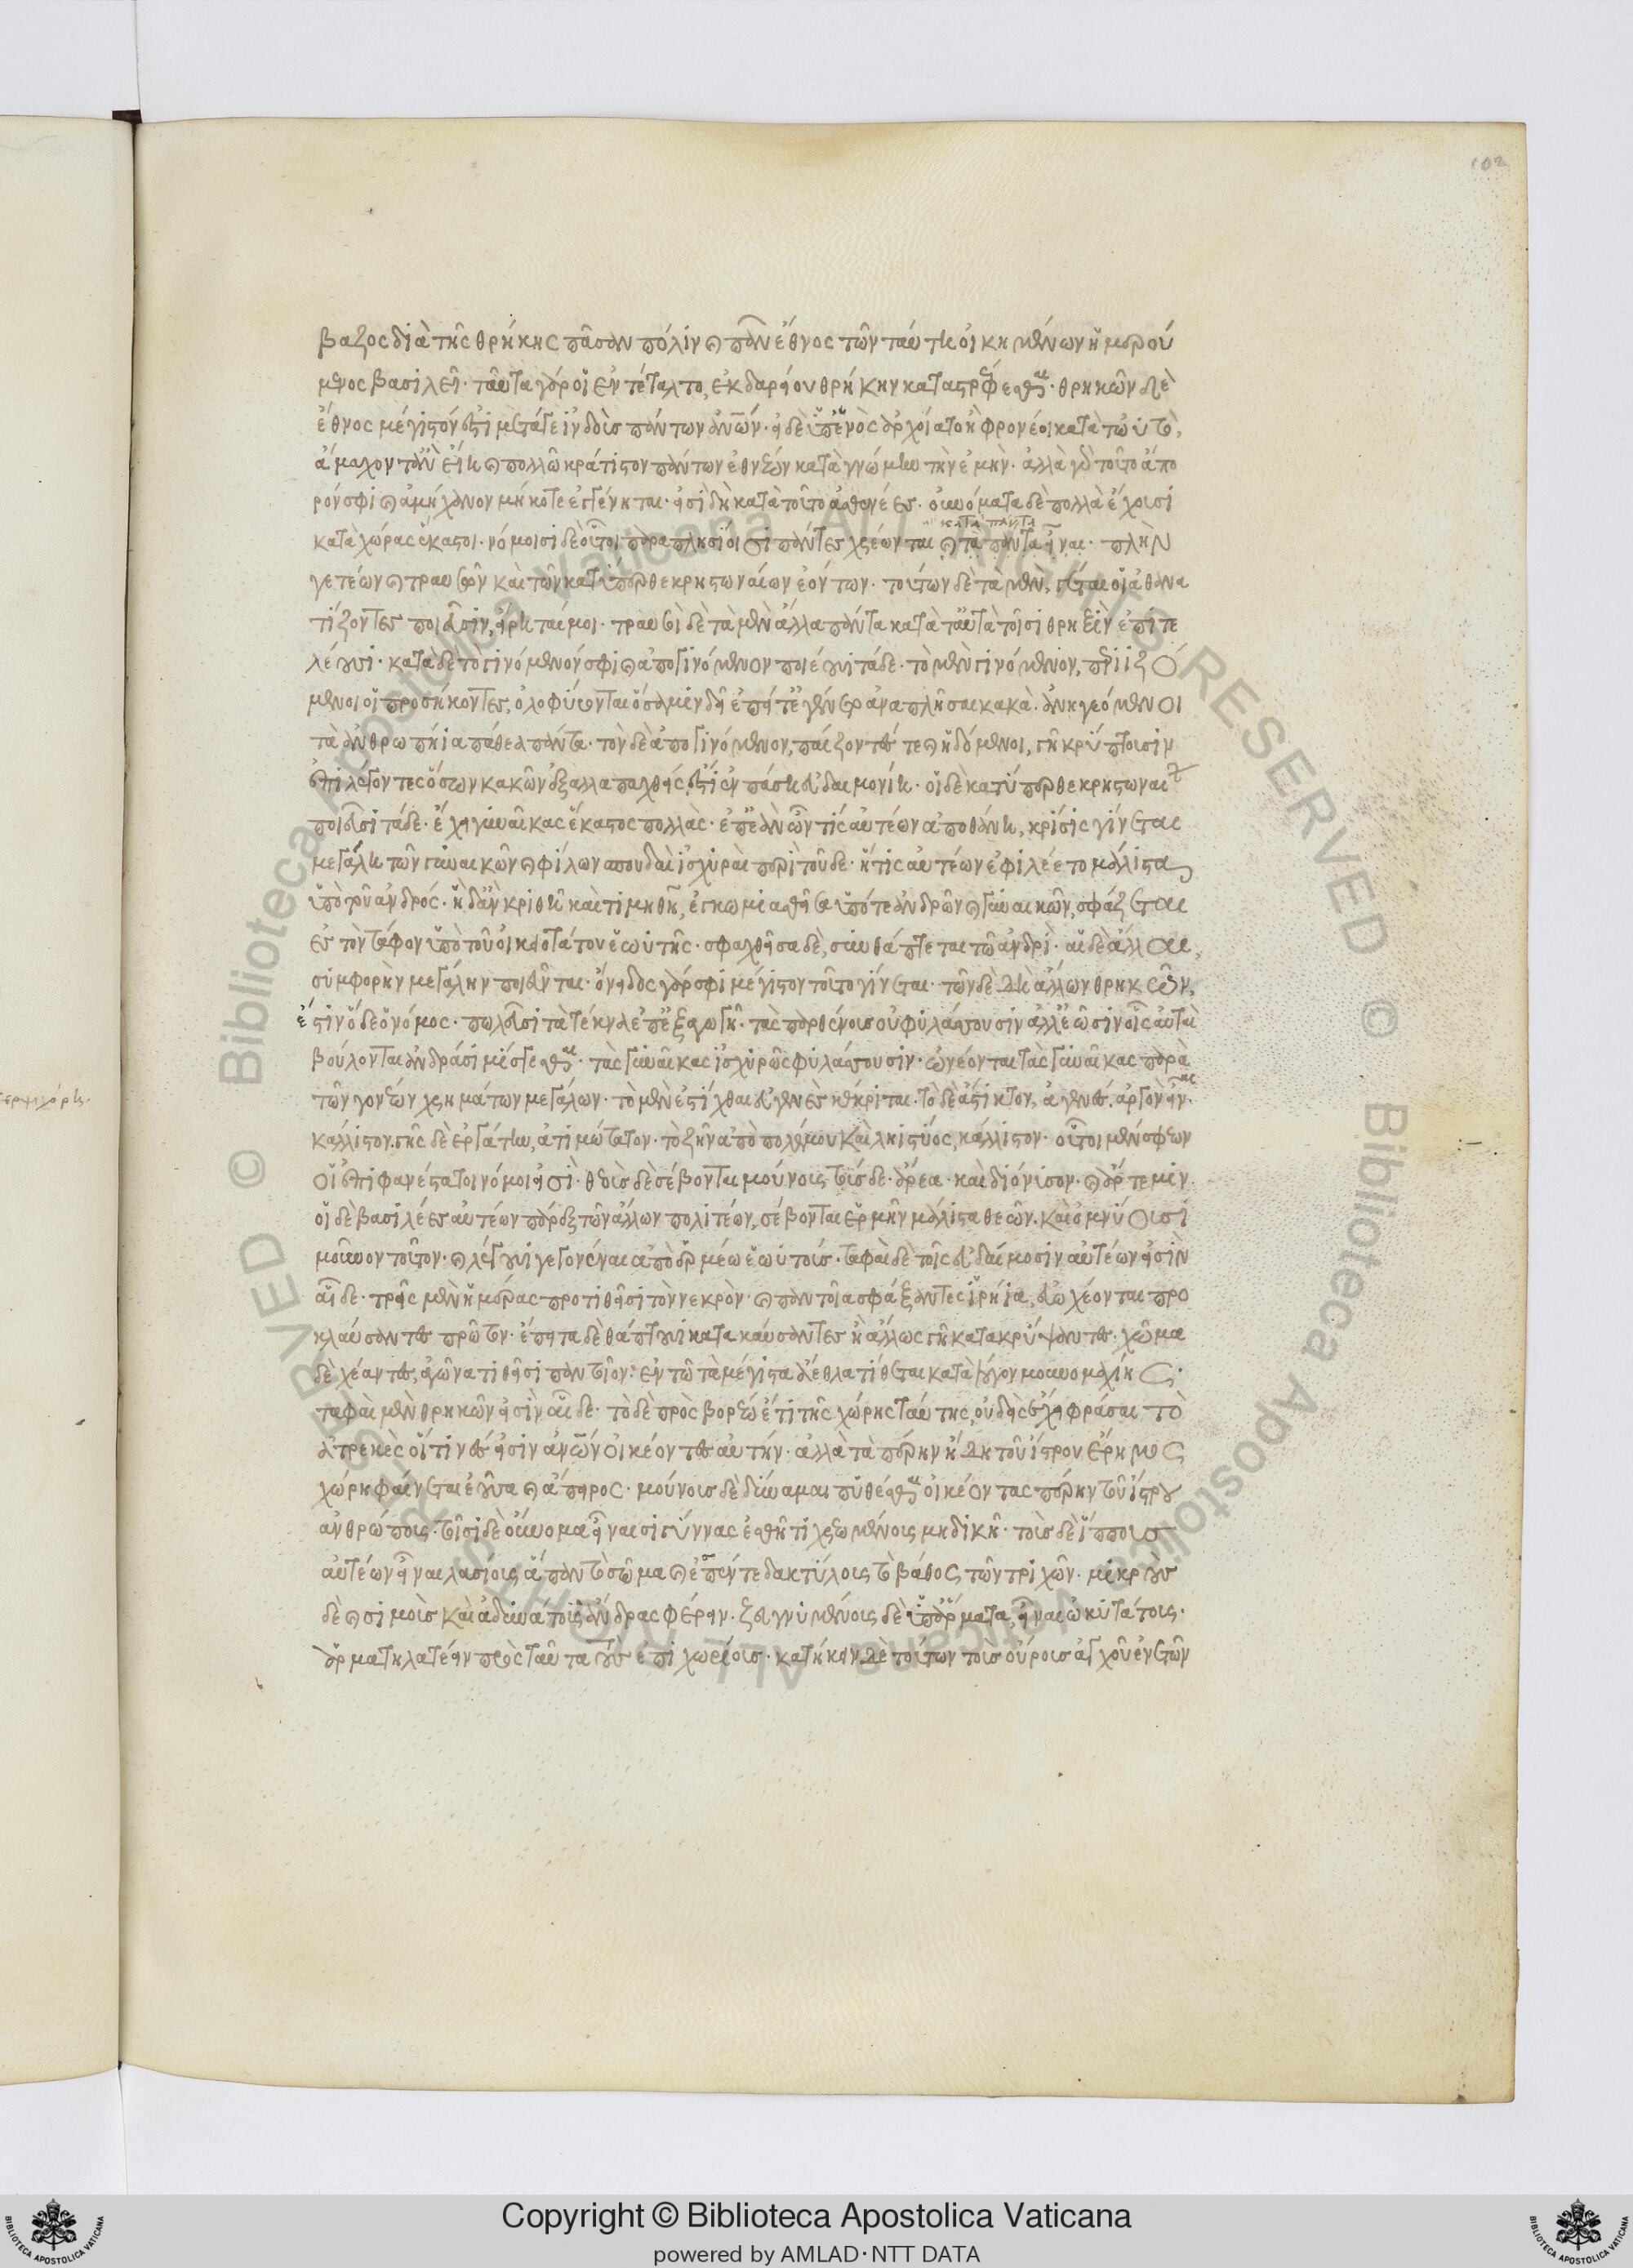 102
βαζος διὰ τῆς θρήκης πᾶσαν πόλιν καὶ πᾶν ἔθνος τῶν ταύτη οἰκημένων ἡμερού
μενος βασιλεῖ· ταῦτα γάρ οἱ ἐντέταλτο, ἐκ δαρείου θρήκην καταστρέφεσθαι· θρηκῶν δὲ
ἔθνος μέγιστόν ἐστι μετά γε ἰνδοὺς πάντων ἀνθρώπων· εἰ δὲ ὑπ' ἑνὸς ἄρχοιατο ἢ φρονέοι κατὰ τὠυτὸ,
ἄμαχον τ' ἂν εἴη καὶ πολλῶ κράτιστον πάντων ἐθνέων κατὰ γνώμην τὴν ἐμὴν· ἀλλὰ γὰρ τοῦτο ἄπο
ρόν σφι καὶ ἀμήχανον μή κοτε ἐγγένηται· εἰσὶ δὴ κατὰ τοῦτο ἀσθενέες· οὐνόματα δὲ πολλὰ ἔχουσι
κατὰ πάντα
κατὰ χώρας ἕκαστοι· νόμοισι δὲ οὗτοι παραπλησίοισι πάντες χρέωνται καὶ τὰ πάντα εἶναι· πλὴν
γετέων καὶ τραυσῶν καὶ τῶν κατύπερθε κρηστωναίων ἐόντων· τουτων δὲ τὰ μὲν, γέται οἱ ἀθανα
τίζοντες ποιεῦσιν, εἴρηταί μοι· τραυσοὶ δὲ τὰ μὲν ἄλλα πάντα κατὰ ταὐτὰ τοῖσι θρήϊξιν ἐπιτε
λέουσι· κατὰ δὲ τὸ γινόμενόν σφι καὶ ἀπογινόμενον ποιέουσι τάδε· τὸ μὲν γινόμενον, περιιζό
μενοι οἱ προσήκοντες, ὀλοφύρονται ὅσα μιν δεῖ ἐπεί τε γένετο ἀναπλῆσαι κακὰ· ἀνηγεόμενοι
τὰ ἀνθρωπήια πάθεα πάντα· τὸν δὲ ἀπογινόμενον, παίζοντές τε καὶ ἡδόμενοι, γῆ κρύπτουσιν
ἐπιλέγοντες ὅσων κακῶν ἐξαπαλλαχθείς ἐστι ἐν πάση εὐδαιμονίη· οἱ δὲ κατύπερθε κρηστωναί
ποιεῦσι τάδε· ἔχει γυναῖκας ἕκαστος πολλὰς· ἐπεὰν ὦν τις αὐτέων ἀποθάνη, κρίσις γίνεται
μεγάλη τῶν γυναικῶν καὶ φίλων σπουδαὶ ἰσχυραὶ περὶ τοῦδε· ἥτις αὐτέων ἐφιλέετο μάλιστα
ὑπὸ τοῦ ἀνδρός· ἣ δ' ἂν κριθῆ καὶ τιμηθῆ, ἐγκωμιασθεῖσα ὑπό τε ἀνδρῶν καὶ γυναικῶν, σφάζεται
ἐς τὸν τάφον ὑπὸ τοῦ οἰκηοτάτου ἑωυτῆς· σφαχθεῖσα δὲ, συνθάπτεται τῶ ἀνδρὶ· αἱ δὲ ἄλλαι,
συμφορὴν μεγάλην ποιεῦνται· ὄνειδος γάρ σφι μέγιστον τοῦτο γίνεται· τῶν δὲ δὴ ἄλλων θρηκῶν,
ἔστιν ὅδε ὁ νόμος· πωλεῦσι τὰ τέκνα ἐπ' ἐξαγωγῆ· τὰς παρθένους οὐ φυλάσσουσιν ἀλλ' ἐῶσιν οἷς αὐταὶ
βούλονται ἀνδράσι μίσγεσθαι· τὰς γυναῖκας ἰσχυρῶς φυλάσσουσιν· ὠνέονται τὰς γυναῖκας παρὰ
τῶν γονέων χρημάτων μεγάλων· τὸ μὲν ἐστίχθαι εὐγενὲς κέκριται· τὸ δὲ ἄστικτον, ἀγενές· ἀργὸν εἶναι
κάλλιστον· γῆς δὲ ἐργάτην, ἀτιμώτατον· τὸ ζῆν ἀπὸ πολέμου καὶ ληιστύος, κάλλιστον· οὗτοι μέν σφεων
οἱ ἐπιφανέστατοι νόμοι εἰσὶ· θεοὺς δὲ σέβονται μούνους τούσδε· ἄρεα· καὶ διόνυσον· καὶ ἄρτεμιν·
οἱ δὲ βασιλέες αὐτέων πάρεξ τῶν ἄλλων πολιτέων, σέβονται ἑρμῆν μάλιστα θεῶν· καὶ ὀμνύουσι
μοῦνον τοῦτον· καὶ λέγουσι γεγονέναι ἀπὸ ἑρμέω ἑωυτούς· ταφαὶ δὲ τοῖς εὐδαίμοσιν αὐτέων εἰσὶν
αἵδε· τρεῖς μὲν ἡμέρας προτιθεῖσι τὸν νεκρὸν· καὶ παντοῖα σφάξαντες ἱρήια, εὐωχέονται προ
κλαύσαντες πρῶτον· ἔπειτα δὲ θάπτουσι κατακαύσαντες ἢ ἄλλως γῆ κατακρύψαντες· χῶμα
δὲ χέαντες, ἀγῶνα τιθεῖσι παντοῖον· ἐν τῶ τὰ μέγιστα ἄεθλα τίθεται κατὰ λόγον μουνομαχίης·
ταφαὶ μὲν θρηκῶν εἰσὶν αἵδε· τὸ δὲ πρὸς βορέω ἔτι τῆς χώρης ταύτης, οὐδεὶς ἔχει φράσαι τὸ
ἀτρεκὲς οἵτινές εἰσιν ἄνθρωποι οἰκέοντες αὐτήν· ἀλλὰ τὰ πέρην ἤδη τοῦ ἴστρου ἔρημος
χώρη φαίνεται ἐοῦσα καὶ ἄπειρος· μούνους δὲ δύναμαι πυθέσθαι οἰκέοντας πέρην τοῦ ἴστρου
ἀνθρώπους· τοῖσι δὲ οὔνομα εἶναι σιγύννας ἐσθῆτι χρεωμένους μηδικῆ· τοὺς δὲ ἵππους
αὐτέων εἶναι λασίους ἅπαν τὸ σῶμα καὶ ἐπὶ πέντε δακτύλους τὸ βάθος τῶν τριχῶν· μικροὺς
δὲ καὶ σιμοὺς καὶ ἀδυνάτους ἄνδρας φέρειν· ζευγνυμένους δὲ ὑπ' ἅρματα, εἶναι ὠκυτάτους·
ἁρματηλατέειν πρὸς ταῦτα τοὺς ἐπιχωρίους· κατήκειν δὲ τούτων τοὺς οὔρους ἀγχοῦ ἐνετῶν
Copyright © Biblioteca Apostolica Vaticana
powered by AMLAD·NTT DATA